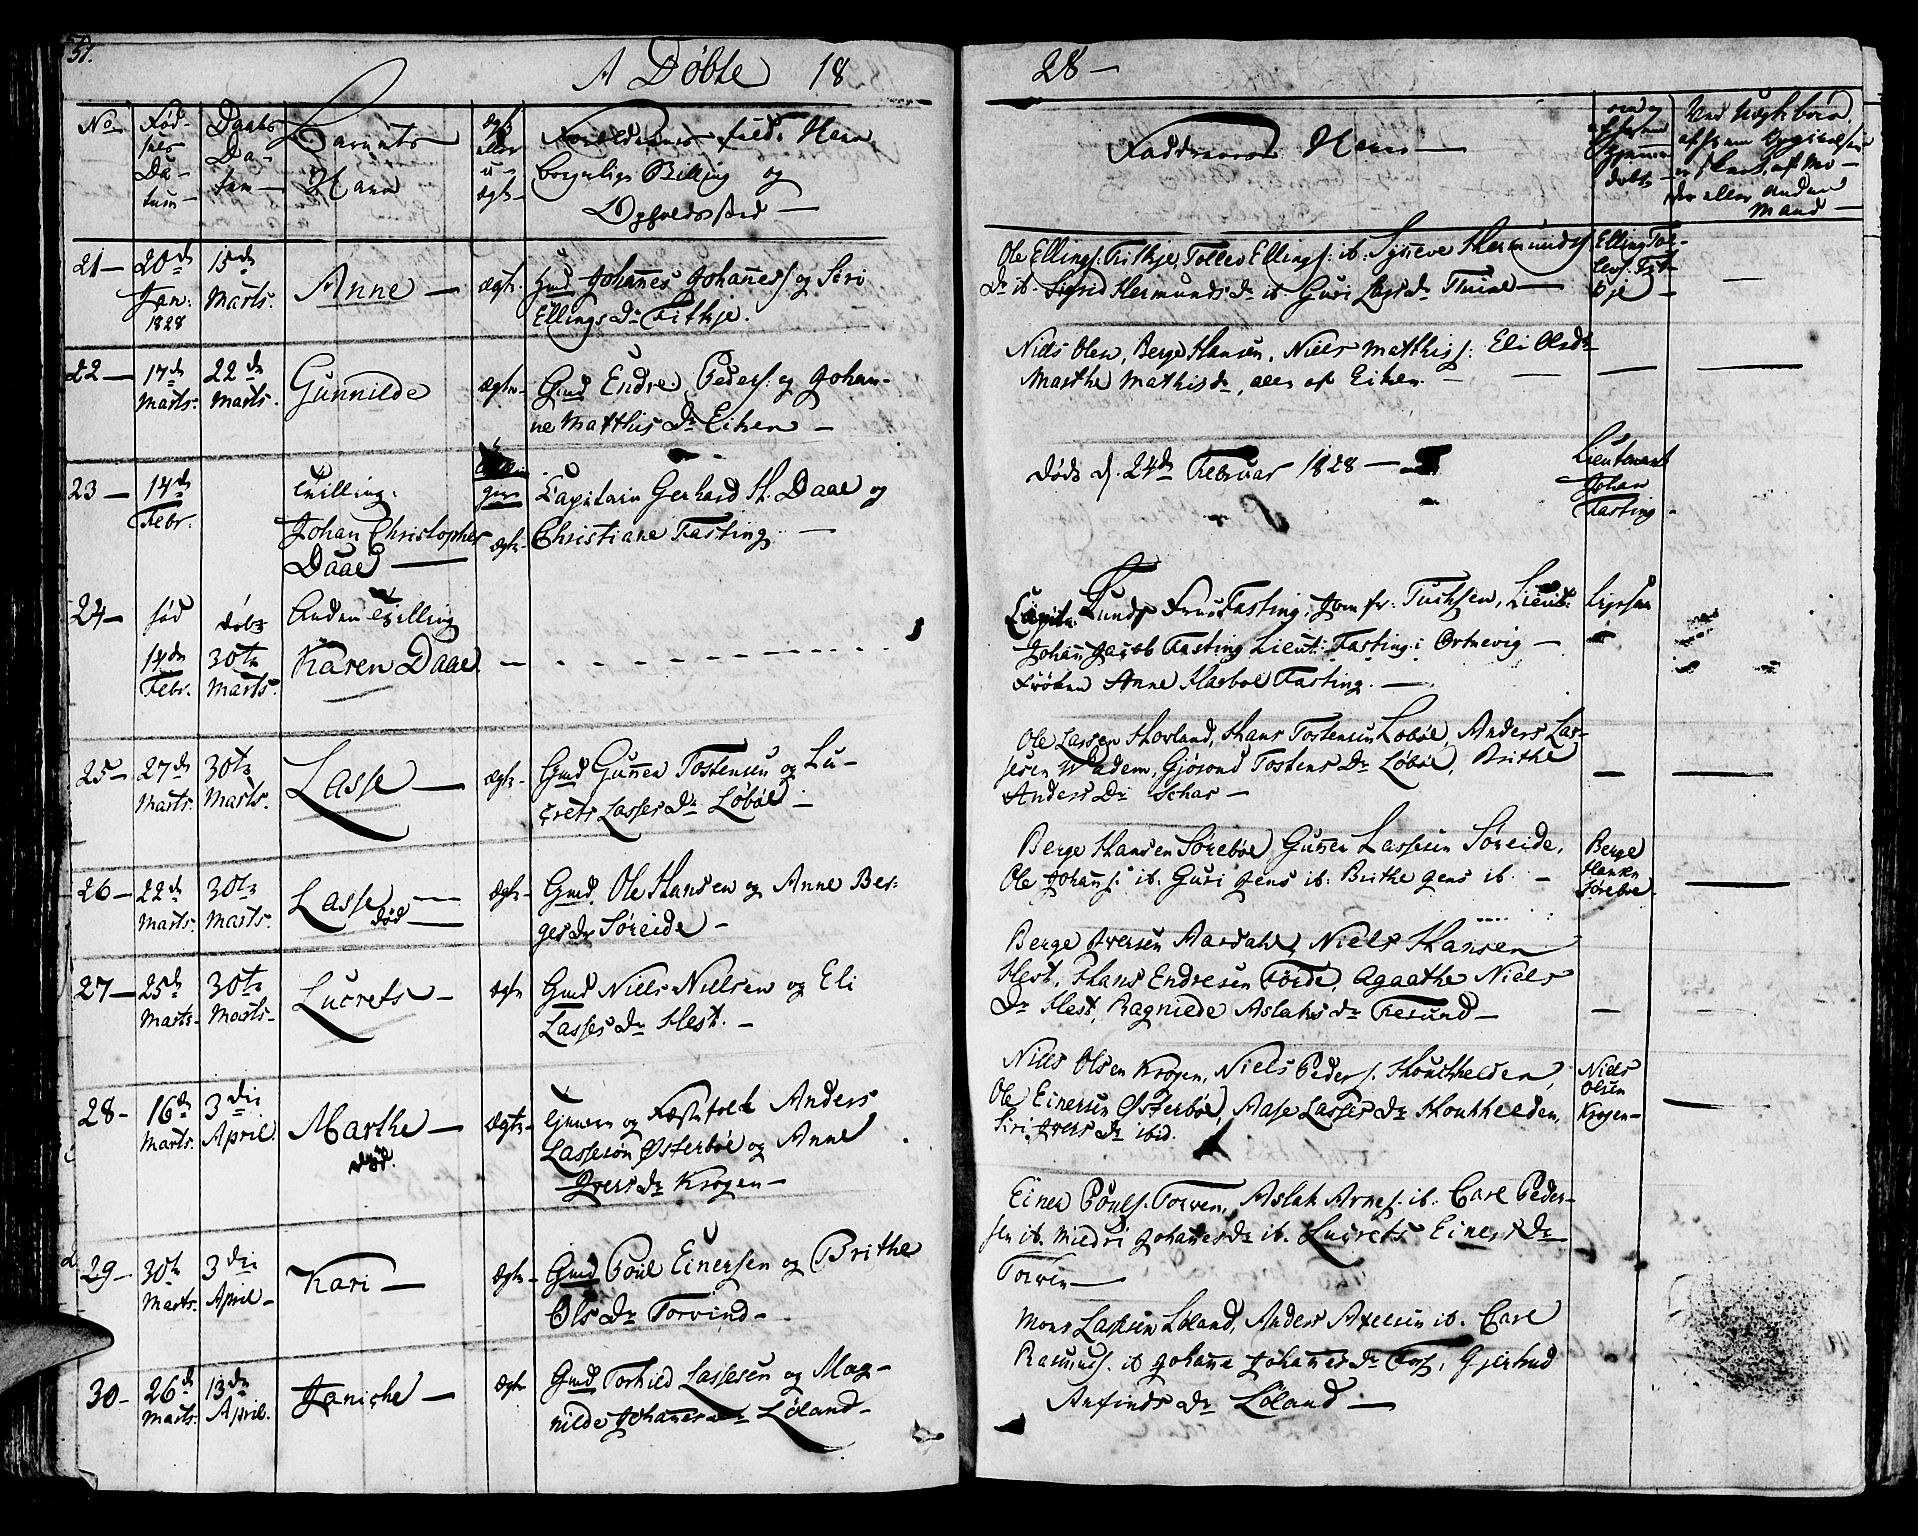 51.
A Døbte 18
28 —
No
Fød-
sels
Da-
tum
Daabs
Da-
tum
Barnets
Navn
ægt
eller
u-
ægte
Forældrenes fulde Navn,
borgerlige Stilling og
Opholdssted
Faddernes Navn
21 — 20de Jan: 1828
15de Marts.
Anne —
ægte.
Gmd Johannes Johanness. og Siri
Ellings Dr Fitkje.
Ole Ellings. Fitkje, Tollev Ellings. ib. Synneve Hermunds
Dr ib. Sigrid Hermunds Dr ib. Guri Lars Dr Thune —
Elling Tol-
levs. Fit-
kje —
22 — 17de Marts.
22de Marts.
Gunnilde
ægte
Gmd Endre Peders. og Johan-
ne Matthis Dr Eiken —
Niels Olsen, Berge Hansen, Niels Matthis s. Eli Olsdr
Marthe Mathisdr, alle af Eiken. —
23 — 14de Febr.
Tvilling.
Johan Christopher
Daae —
ægte
Capitain Gerhard H. Daae og
Christiane Fasting —
Døde d. 24de Februar 1828 —
Lieutenant
Johan
Fasting.
24 — fød
14de Febr.
døbt
30te Marts.
Anden Tvilling
Karen Daae
Capit. Lunds Frue Fasting, Jomfr: Tuchsen, Lieut:
Johan Jacob Fasting Lieut: Fasting i Ortnevig —
Frøken Anne Harboe Fasting. —
25 — 27de Marts
30te Marts.
Lasse —
ægte
Gmd Gunner Tostensen og Lu-
crets Lasses Dr Løbøe —
Ole Lassen Hovland, Hans Tostensen Løbøe, Anders Las-
sesen Wadem, Gjøsond Tostens Dr Løbøe, Brithe
Anders Dr Schar —
26 — 22de Marts.
30te Marts.
Lasse —
død —
ægte
Gmd. Ole Hansen og Anne Ber-
ges Dr Søreide —
Berge Hansen Sørebøe, Gunner Lassesen Søreide,
Ole Johans. ib. Guri Jens ib. Brithe Jens ib. —
Berge
Hansen
Sørebøe.
27 — 25de Marts.
30te Marts.
Lucrets —
ægte
Gmd Niels Nielsen og Eli
Lasses Dr Hest. —
Berge Iversen Aardahl, Niels Hansen
Hest, Hans Endresen Førde, Agaathe Niels
Dr Hest, Ragniede Aslaks Dr Tresund —
28 — 16de Marts.
3die April.
Marthe —
død.
ægte
og Fæstefolk Anders
Lassesøn Østerbøe og Anne
Ivers Dr Krogen —
Niels Olsen Krogen, Niels Peders.
Ole Einersen Østerbøe, Aase Lasses Dr
Siri Ivers Dr ibid.
Niels
Olsen
Krogen —
29 — 30te Marts.
3die April —
Kari —
ægte
Gmd Poul Einersen og Brithe
Ols Dr Torvind —
Einer Pouls. Torven, Aslak Arnes. ib. Carl Peder-
sen ib. Johannes Dr ib. Lucrets Einers Dr
Torven —
30 — 26de Marts.
13de April.
Janiche —
ægte
Gmd Torkild Lassesen og Mag-
nilde Johannes Dr Løland —
Mons Lassesen Løland, Anders Axelsen ib. Carl
Rasmuss. ib Johanne Johannes Dr Gjertrud
Anfinds Dr Løland —